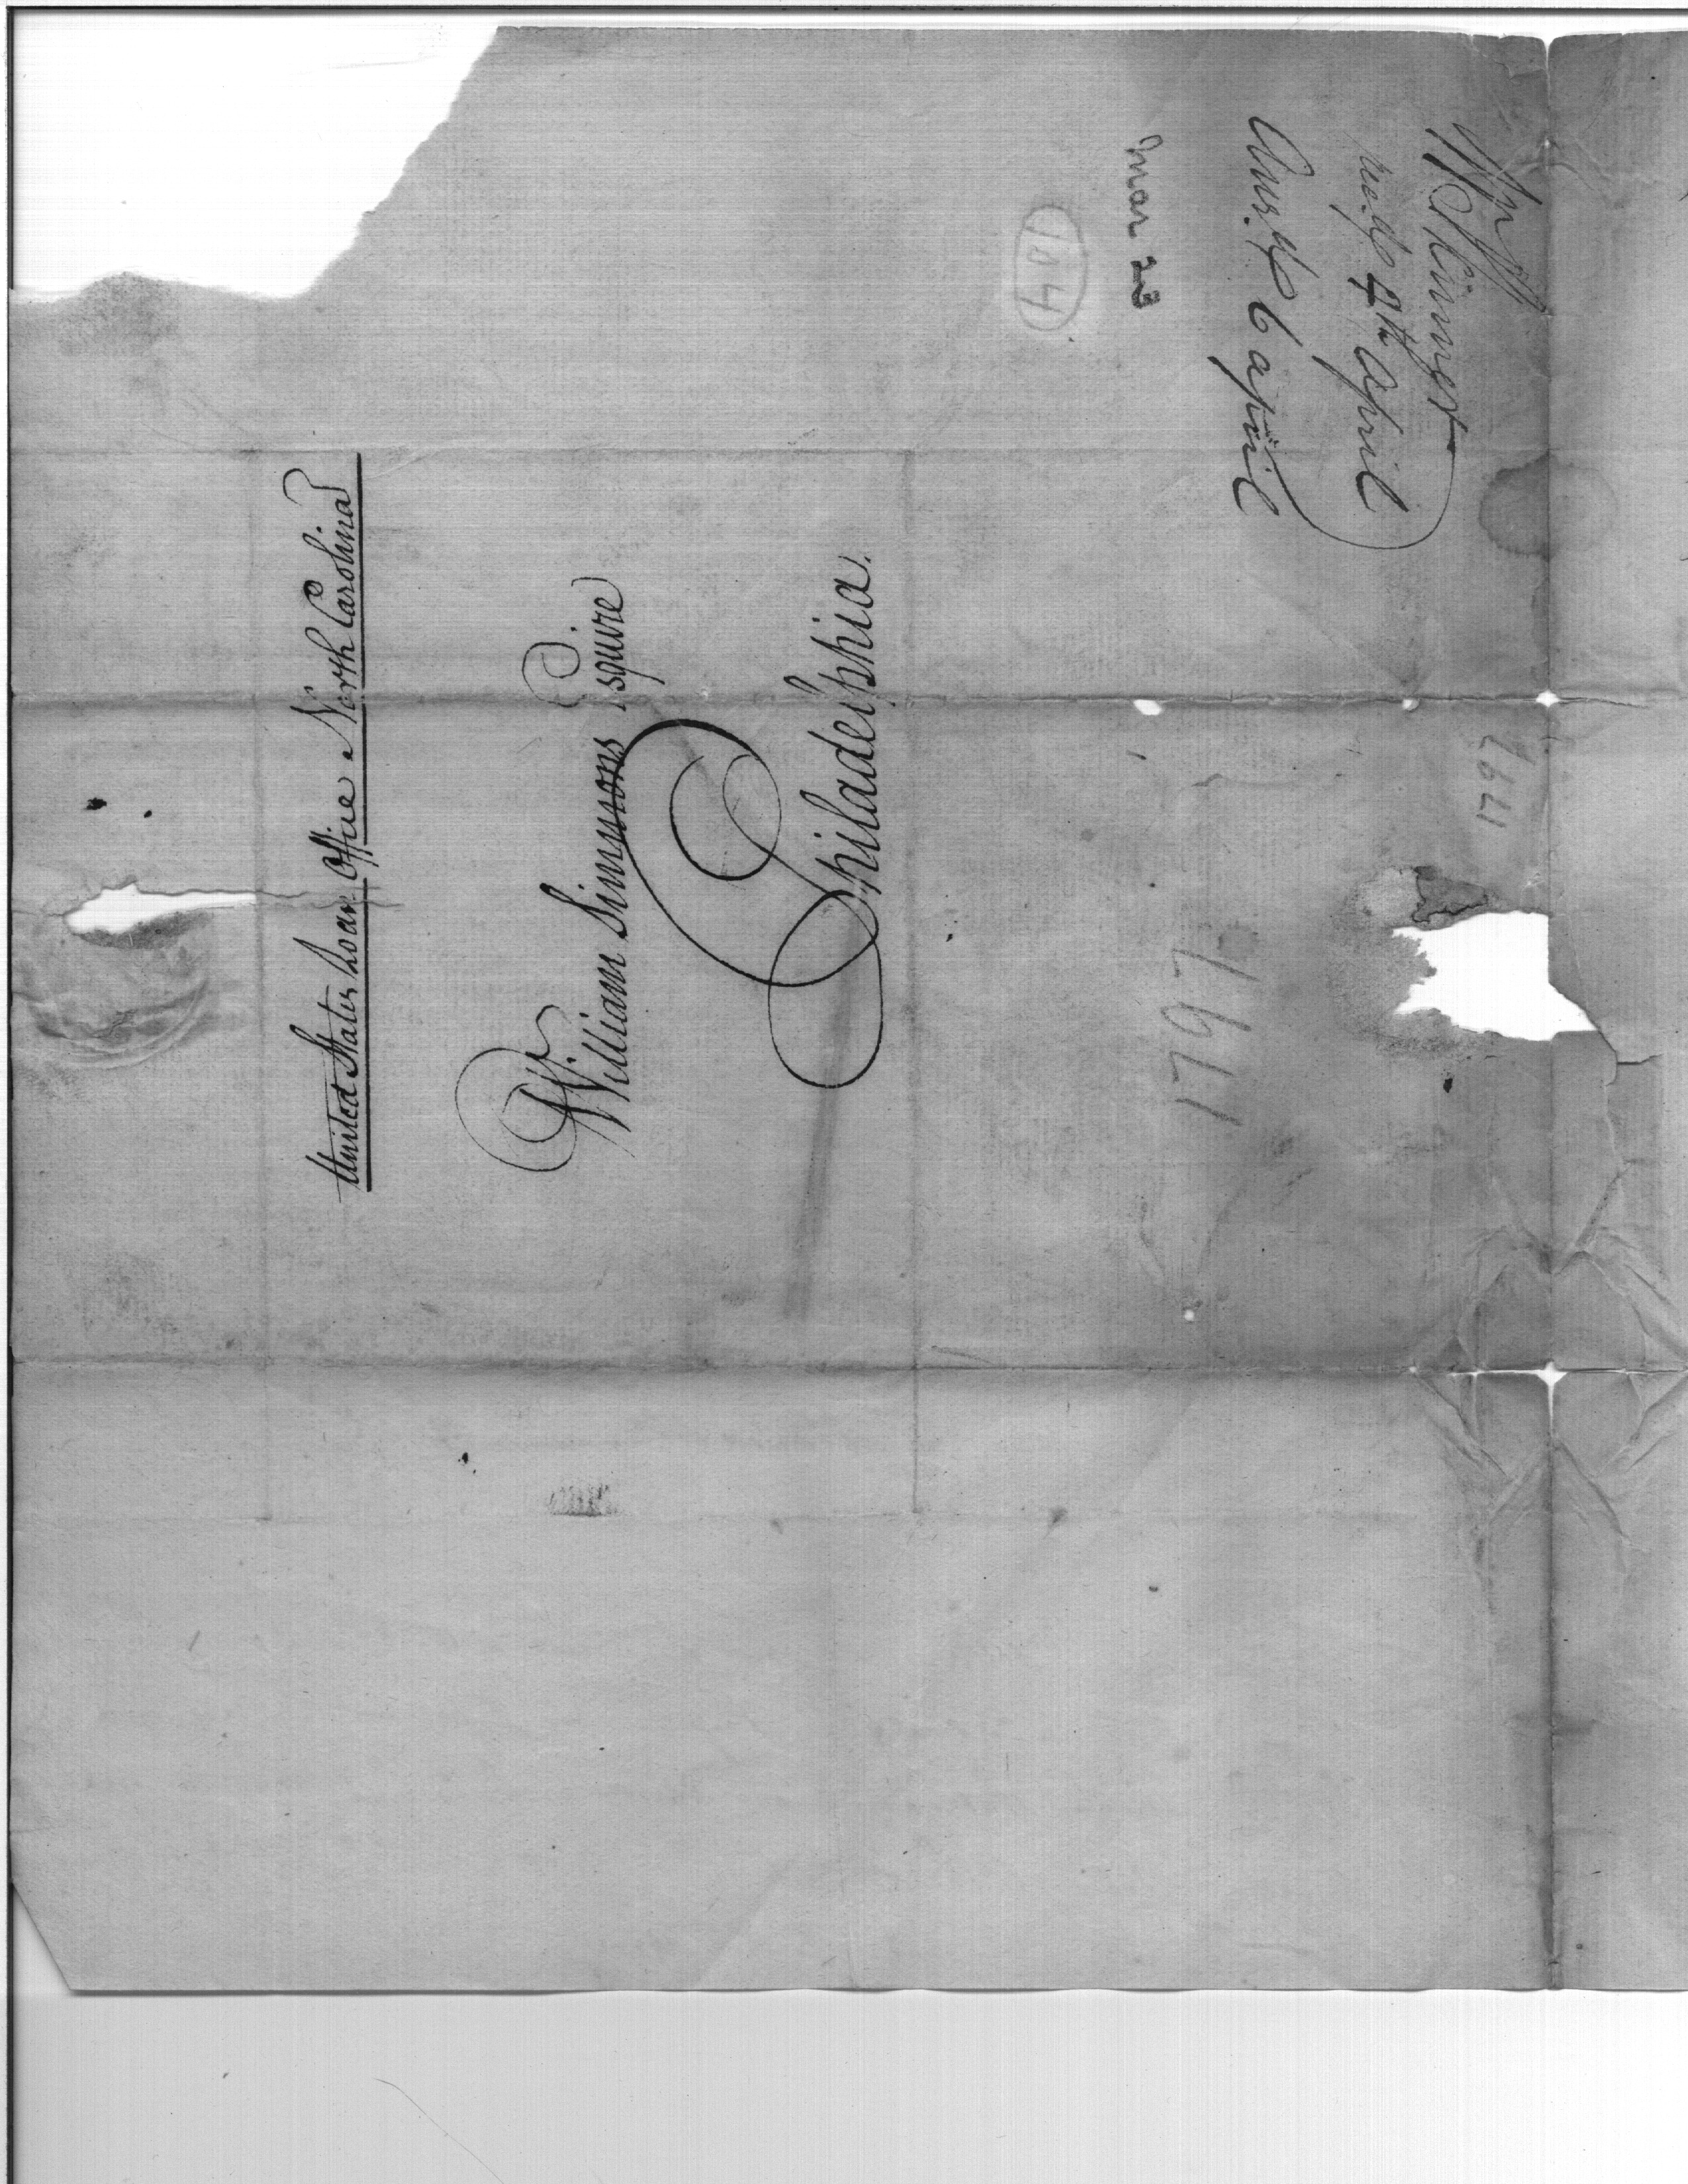 United States Loan Office North Carolina
William Simmons Esquire
Philadelphia.
Wm Skinner
recd. 4th April
Answd 6 april
Mar 23
184
1797
1797